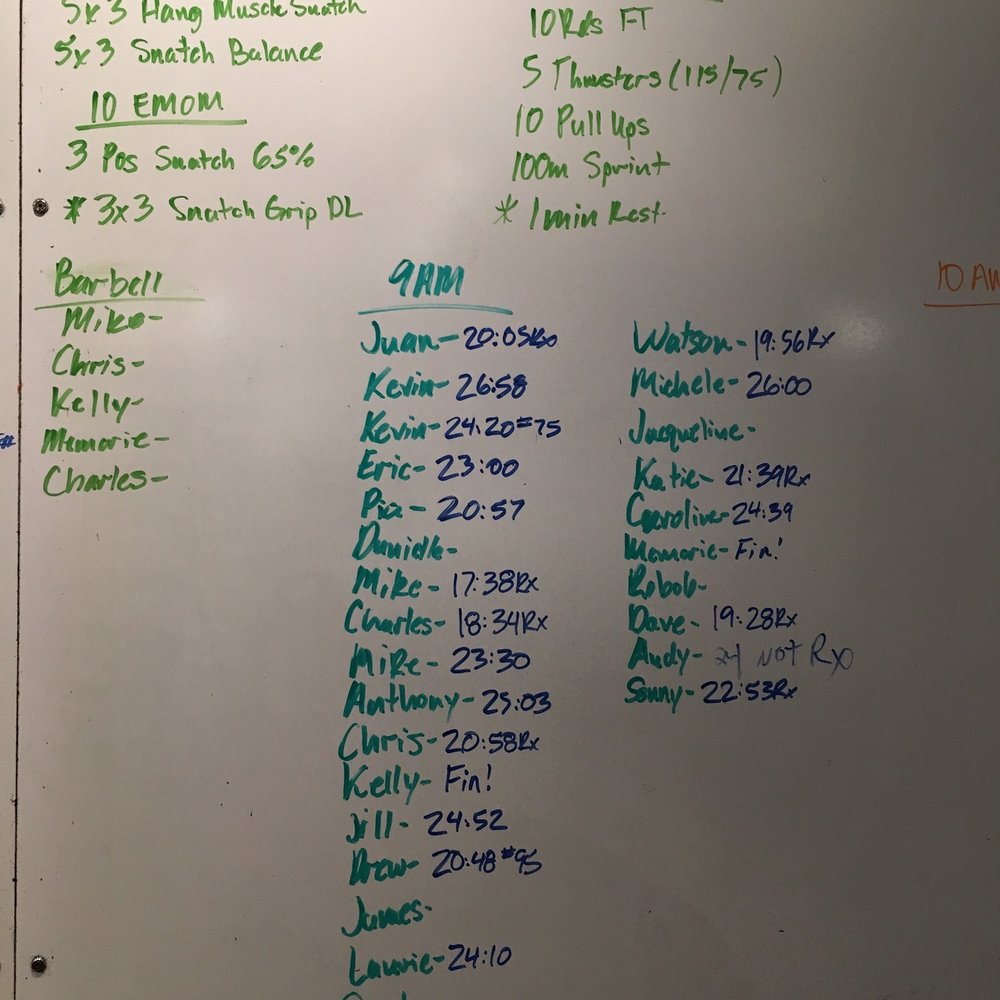 5x3 Hang Muscle Snatch
5x3 Snatch Balance
10 EMOM
3 Pos Snatch 65%
* 3x3 Snatch Grip DL
10 Rds FT
5 Thrusters (115/75)
10 Pull Ups
100m Sprint
* 1 min Rest
Barbell
Mike-
Chris-
Kelly-
Memorie-
Charles-
9AM
Juan- 20:05Rx
Kevin- 26:58
Kevin- 24:20 #75
Eric- 23:00
Pia- 20:57
Danielle-
Mike- 17:38Rx
Charles- 18:34Rx
Mike- 23:30
Anthony- 25:03
Chris- 20:58Rx
Kelly- Fin!
Jill- 24:52
Drew- 20:48 #95
James-
Laurie- 24:10
Watson- 19:56Rx
Michele- 26:00
Jacqueline-
Katie- 21:39Rx
Caroline- 24:39
Memorie- Fin!
Robob-
Dave- 19:28Rx
Andy- 24 NOT Rx
Sonny- 22:53Rx
10 AM